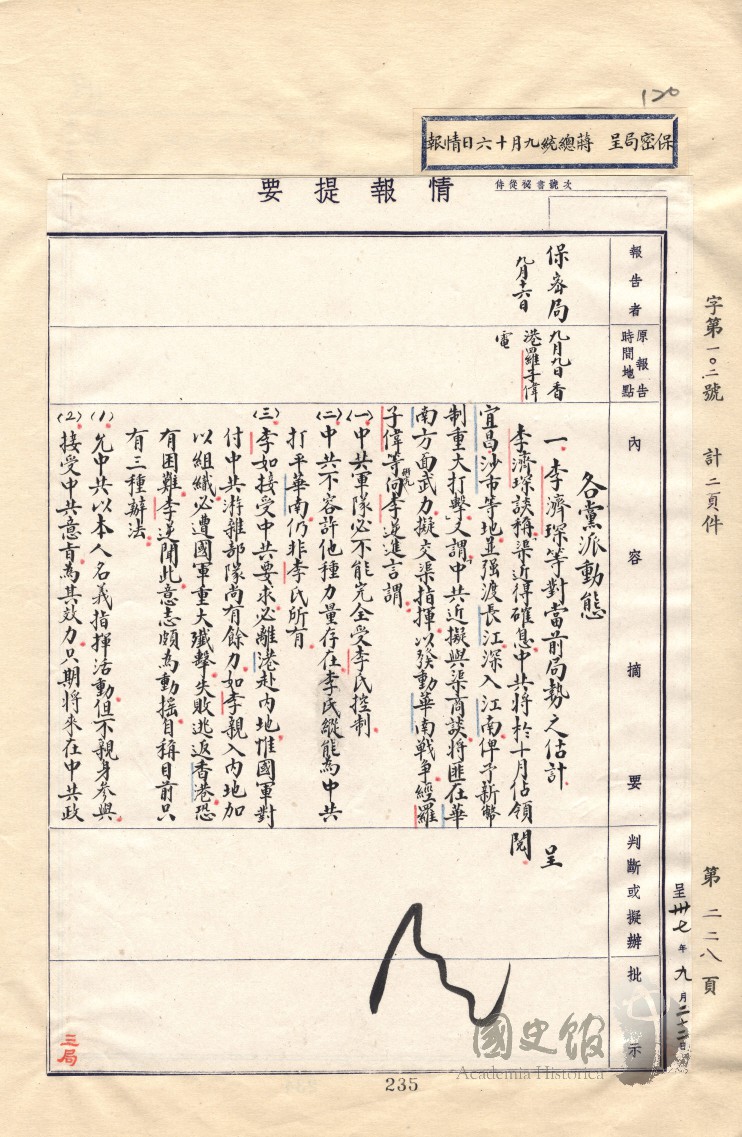 120
保密局呈 蔣總統九月十六日情報
情報提要
侍從秘書號次
字第一〇二號 計二頁件
第二二八頁
呈卅七年九月二十二日
報告者
原報告時間地點
內容摘要
判斷或擬辦
批示
保密局
九月十六日
九月九日香
港羅李偉
電
各黨派動態
一、李濟琛等對當前局勢之估計
李濟琛談稱渠近得確息中共將於十月佔領
宜昌沙市等地並强渡長江深入江南俾予新幣
制重大打擊又謂中共近擬與渠商談將匪在華
南方面武力擬交渠指揮以發動華南戰爭經羅
子偉等向李逆進言謂
(一)中共軍隊必不能完全受李氏控制
(二)中共不容許他種力量存在李氏縱能為中共
打平華南仍非李氏所有
(三)李如接受中共要求必離港赴內地惟國軍對
付中共游雜部隊尚有餘力如李親入內地加
以組織必遭國軍重大殲擊失敗逃返香港恐
有困難李逆聞此意志頗為動搖自稱目前只
有三種辦法
(1)允中共以本人名義指揮活動但不親身參與
(2)接受中共意旨為其效力只期將來在中共政
呈
閱
三局
235
國史館
Academia Historica